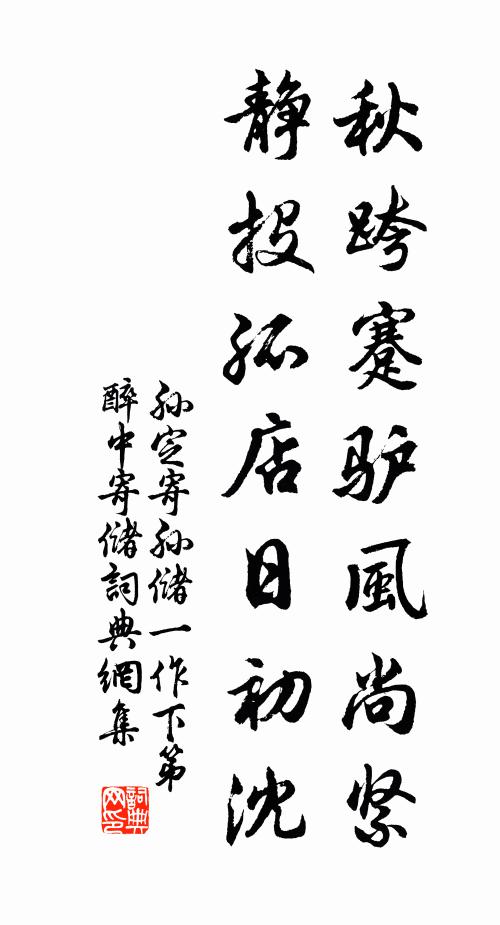 秋跨蹇驴風尚紧
静投孤店日初沈
孙定寄孙儲一作下第
醉中寄儲詞典網集
詞典网印